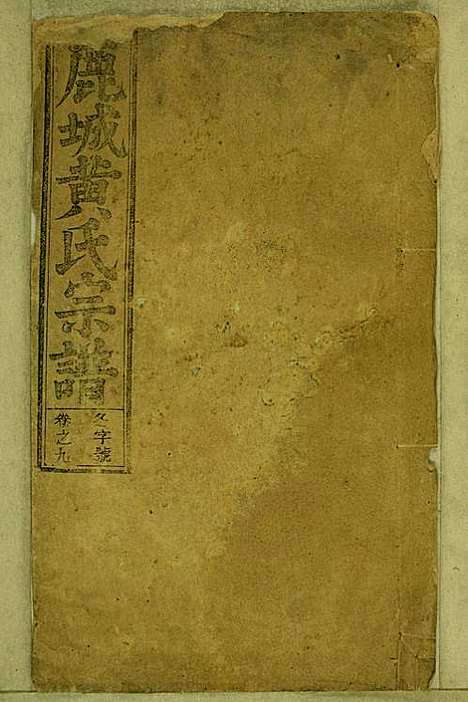 鹿城黄氏宗譜
冬字號
卷之九